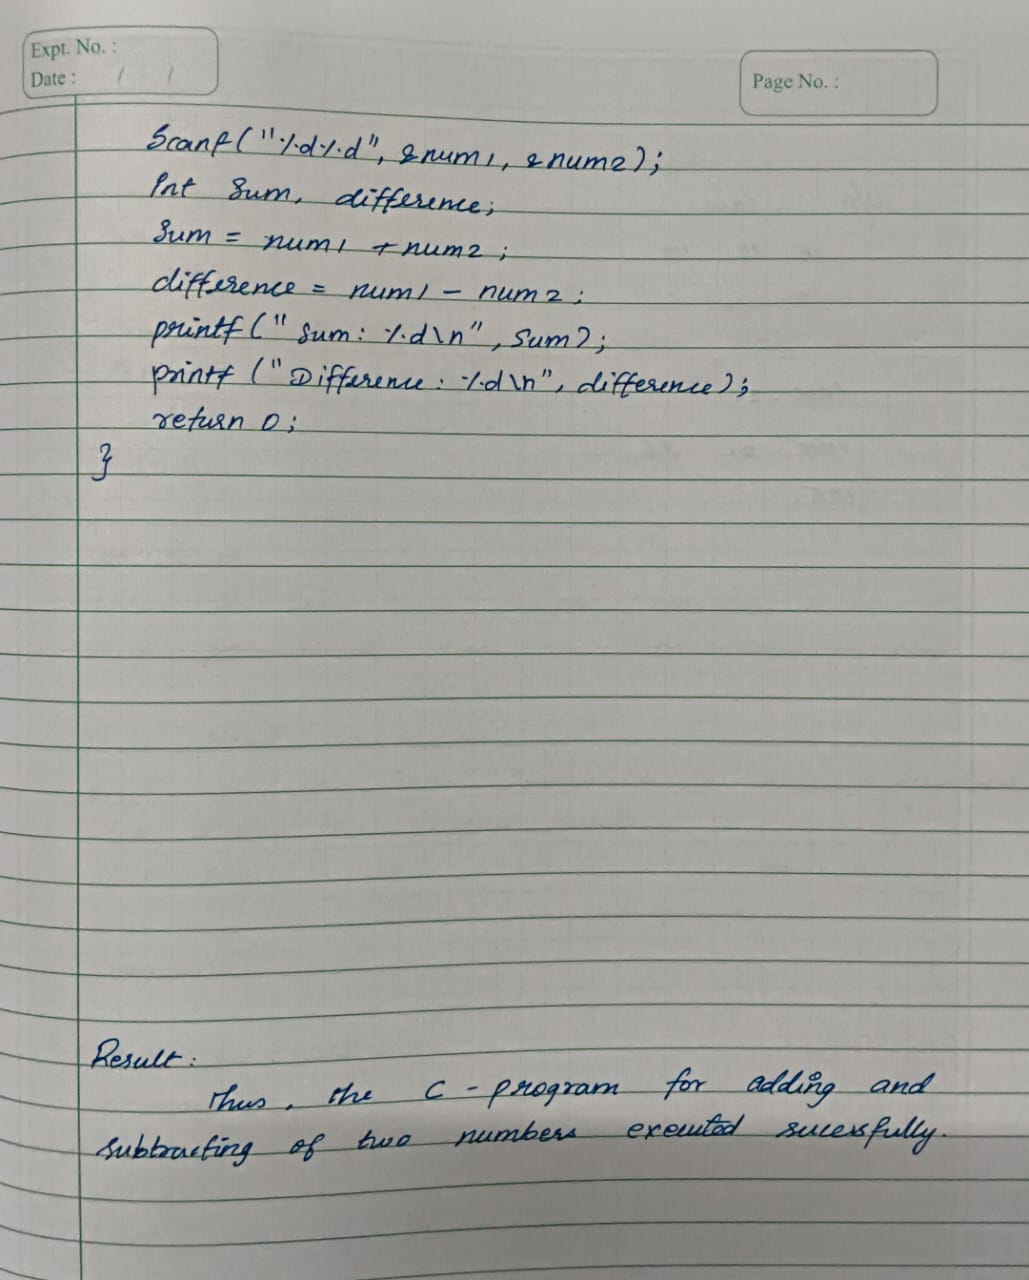 Expt. No. :
Date : / /
Page No. :
Scanf("%d%d", &num1, &num2);
int Sum, difference;
Sum = num1 + num2;
difference = num1 - num2;
printf("Sum: %d\n", Sum);
printf("Difference: %d\n", difference);
return 0;
}
Result:
Thus, the C-program for adding and
subtracting of two numbers executed sucessfully.